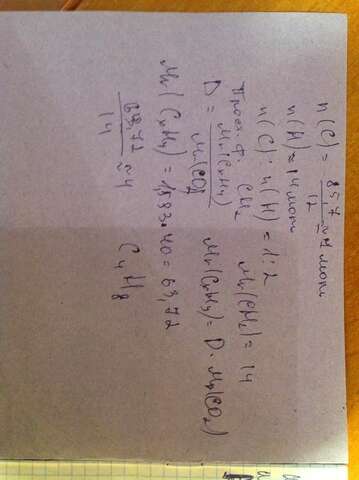 n(C) = 857/12 ≈ 7 моль
n(H) = 14 моль
n(C) : n(H) = 1 : 2
Прост. ф. CH₂ Mr(CH₂) = 14
D = Mr(CxHy)/Mr(CO₂) Mr(CxHy) = D · Mr(CO₂)
Mr(CxHy) = 1,593 · 40 = 63,72
63,72/14 ≈ 4 C₄H₈